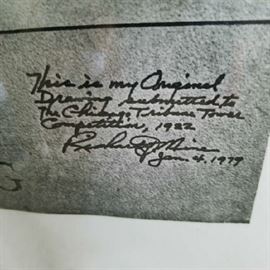 This is my Original
Drawing submitted to
The Chicago Tribune Tower
Competition, 1922
Jan. 4, 1979